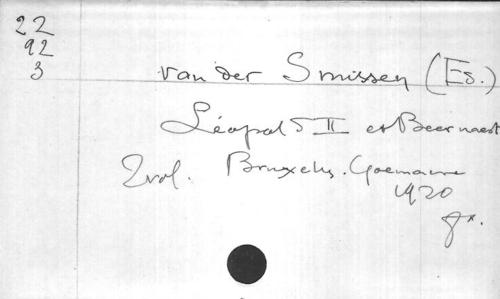 22
92
3
van der Smissen (Ed.)
Léopold II et Beernaert
2 vol. Bruxelles. Goemaere
1920
8°.